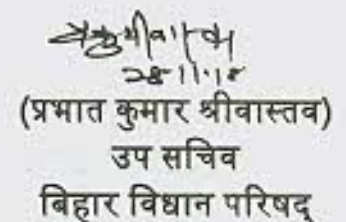 28.11.18
(प्रभात कुमार श्रीवास्तव)
उप सचिव
बिहार विधान परिषद्